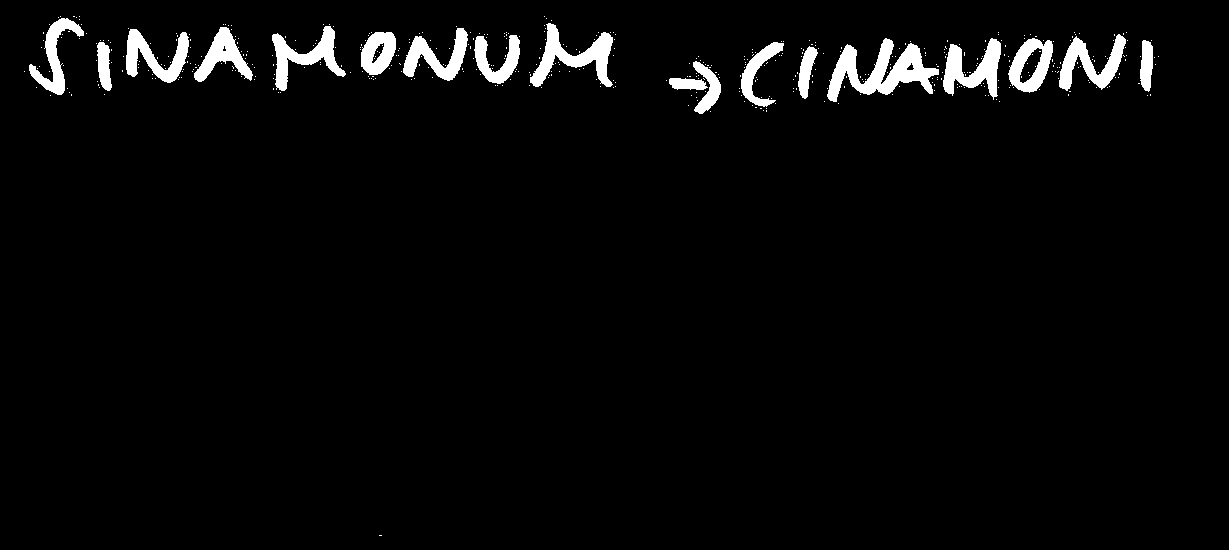 SINAMONUM → CINAMONI